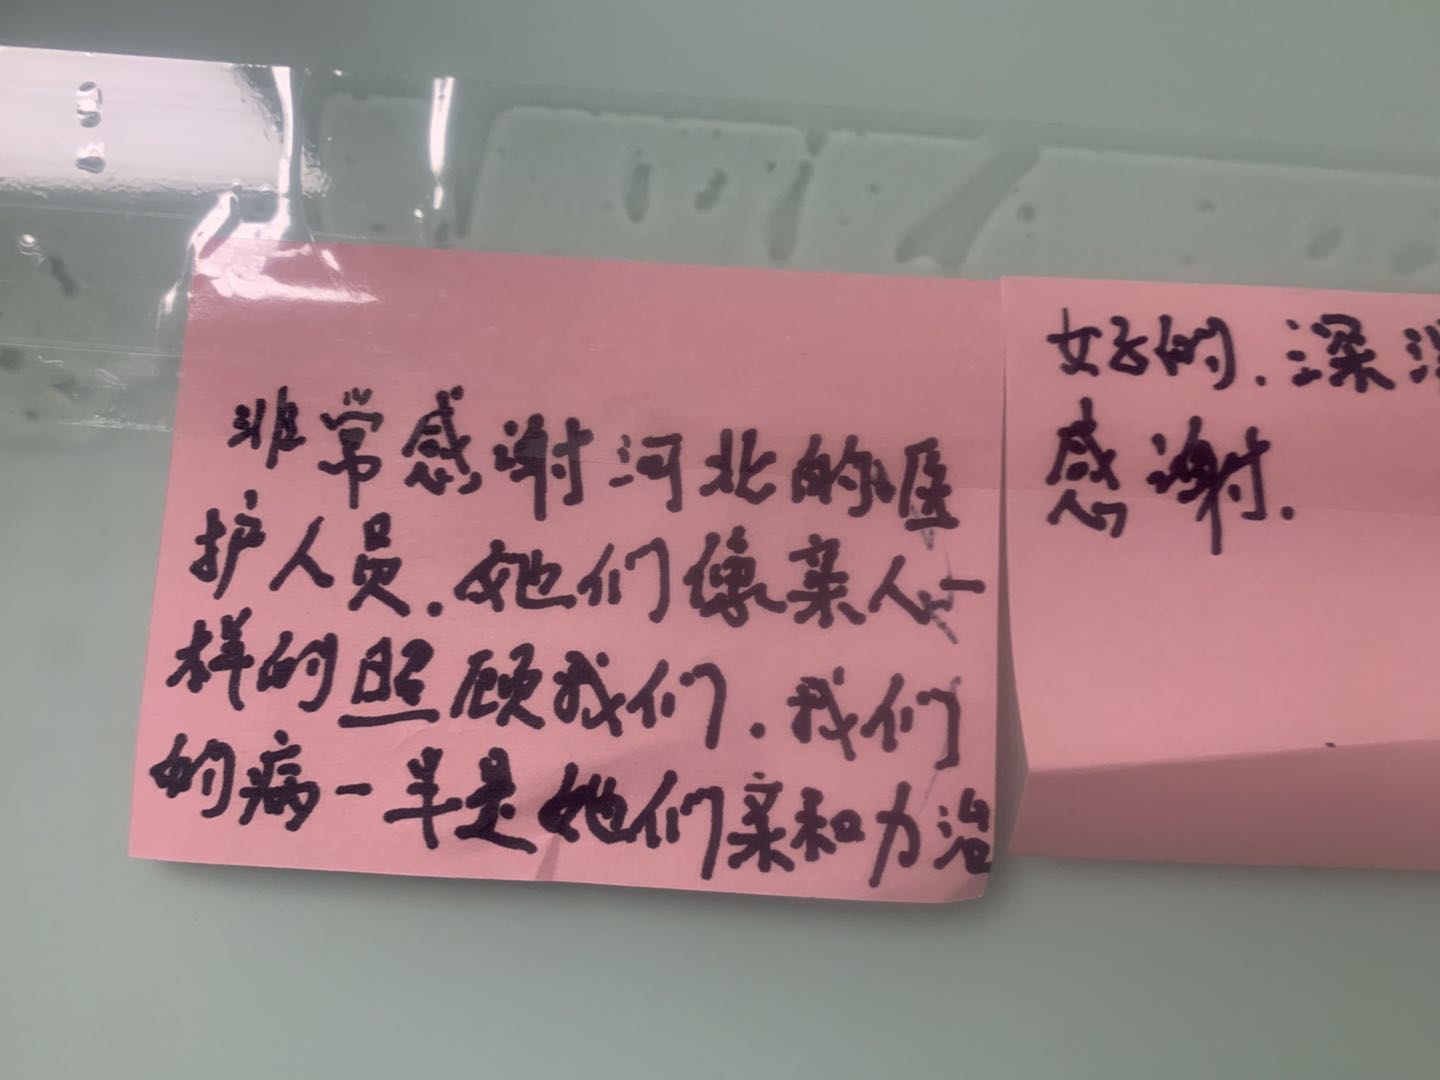 非常感谢河北的医
护人员.她们像亲人一
样的照顾我们.我们
的病一半是她们亲和力治
好的.深
感谢.